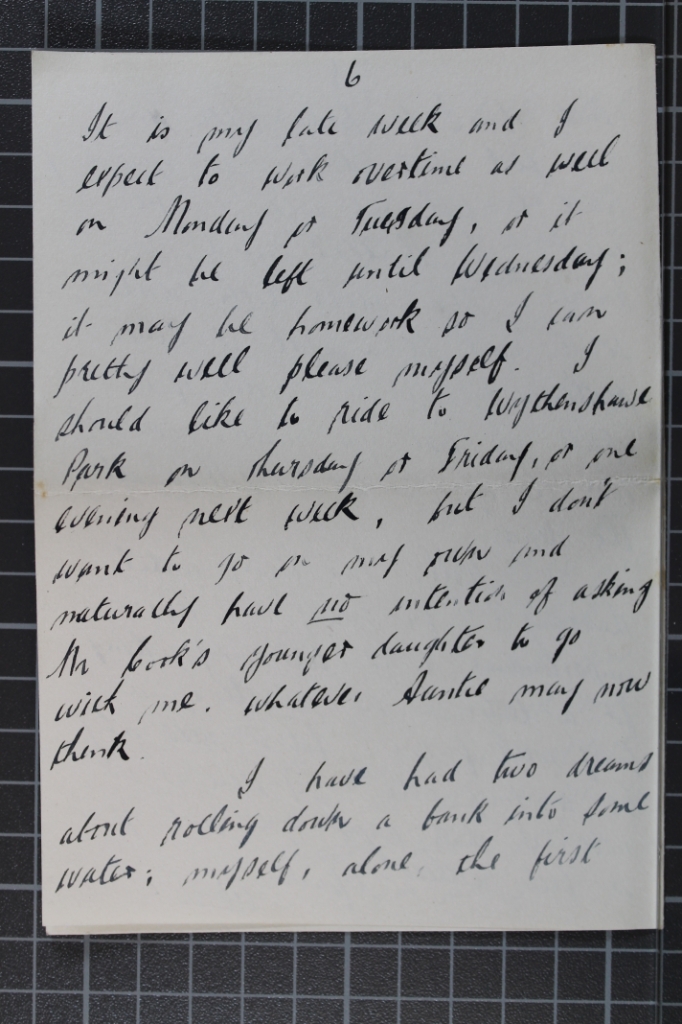 6
It is my late week and I
expect to work overtime as well
on Monday or Tuesday, or it
might be left until Wednesday;
it may be homework so I can
pretty well please myself. I
should like to ride to Wythenshawe
Park on Thursday or Friday, or one
evening next week, but I don't
want to go on my own and
naturally have no intention of asking
Mr Cook's younger daughter to go
with me, whatever Auntie may now
think.
I have had two dreams
about rolling down a bank into some
water; myself, alone, the first